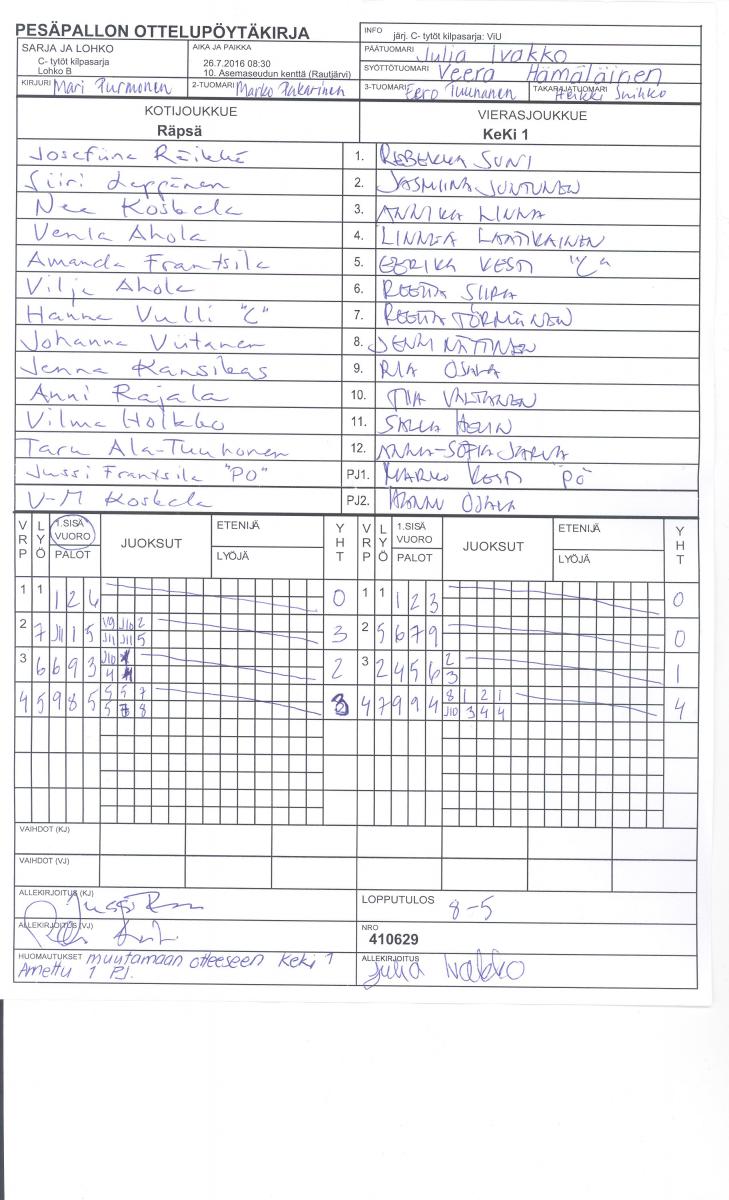 PESÄPALLON OTTELUPÖYTÄKIRJA
INFO järj. C- tytöt kilpasarja: ViU
SARJA JA LOHKO
C- tytöt kilpasarja
Lohko B
AIKA JA PAIKKA
26.7.2016 08:30
10. Asemaseudun kenttä (Rautjärvi)
PÄÄTUOMARI Julia Ivakko
SYÖTTÖTUOMARI Veera Hämäläinen
KIRJURI Mari Purmonen
2-TUOMARI Marko Pakarinen
3-TUOMARI Eero Tuunanen
TAKARAJATUOMARI Heikki Suikko
KOTIJOUKKUE
Räpsä
VIERASJOUKKUE
KeKi 1
Josefiina Räikkä 1. REBEKKA SUNI
Siiri Leppänen 2. JASMIINA JUNTUNEN
Nea Koskela 3. ANNIKA LINNA
Venla Ahola 4. LINNEA LAATIKAINEN
Amanda Frantsila 5. EERIKA KESTI "C"
Vilja Ahola 6. REETTA SIIRA
Hanna Vulli "C" 7. REETTA TÖRMÄNEN
Johanna Viitanen 8. JENNI NÄTINEN
Jenna Kansikas 9. RIA OSALA
Anni Rajala 10. TIIA VALTANEN
Vilma Holkko 11.
Taru Ala-Tuuhonen 12. ANNA-SOFIA
Jussi Frantsila "PO" PJ1. MARKO KESTI PÖ
V-M Koskela PJ2. OSALA
VRP LYÖ 1.SISÄ VUORO PALOT JUOKSUT ETENIJÄ LYÖJÄ YHT VRP LYÖ 1.SISÄ VUORO PALOT JUOKSUT ETENIJÄ LYÖJÄ YHT
1 1 1 2 6 0 1 1 1 2 3 0
2 7 J11 1 5 V9 J10 2 3 2 5 6 7 9 0
J11 J11 5
3 6 6 9 3 J10 2 3 2 4 5 6 2 1
4 3
4 5 9 8 5 5 5 7 3 4 7 9 9 4 8 1 2 1 4
5 7 8 J10 3 4 4
VAIHDOT (KJ)
VAIHDOT (VJ)
ALLEKIRJOITUS (KJ)
LOPPUTULOS 8-5
ALLEKIRJOITUS (VJ)
NRO
410629
HUOMAUTUKSET muutamaan otteeseen Keki 1
Annettu 1 PJ.
ALLEKIRJOITUS
Julia Ivakko